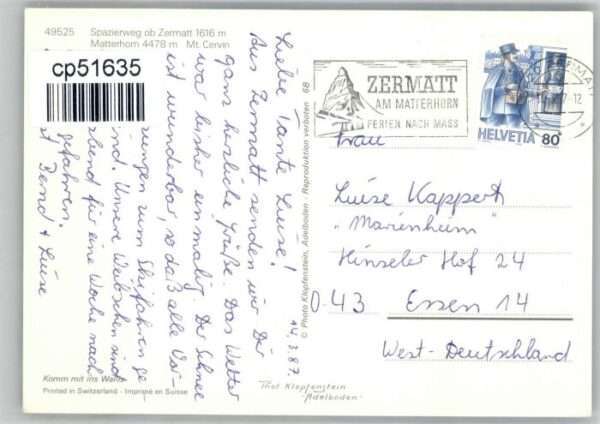 49525 Spazierweg ob Zermatt 1616 m
Matterhorn 4478 m Mt. Cervin
cp51635
Liebe Tante Luise!
Aus Zermatt senden wir Dir
ganz herzliche Grüße. Das Wetter
war bisher einmalig. Der Schnee
ist wunderbar, so daß alle Vor-
zungen zum Skifahren ge
ind. Unsere Weibschen sind
bend für eine Woche nach
gefahren.
Bernd + Luise
14.3.87.
© Photo Klopfenstein, Adelboden - Reproduktion verboten 68
ZERMATT
AM MATTERHORN
FERIEN NACH MASS
HELVETIA 80
Frau
Luise Kappert
"Marienheim"
Hinseler Hof 24
D-43 Essen 14
West-Deutschland
Komm mit ins
Printed in Switzerland - Imprimé en Suisse
Thol Klopfenstein
-Adelboden-